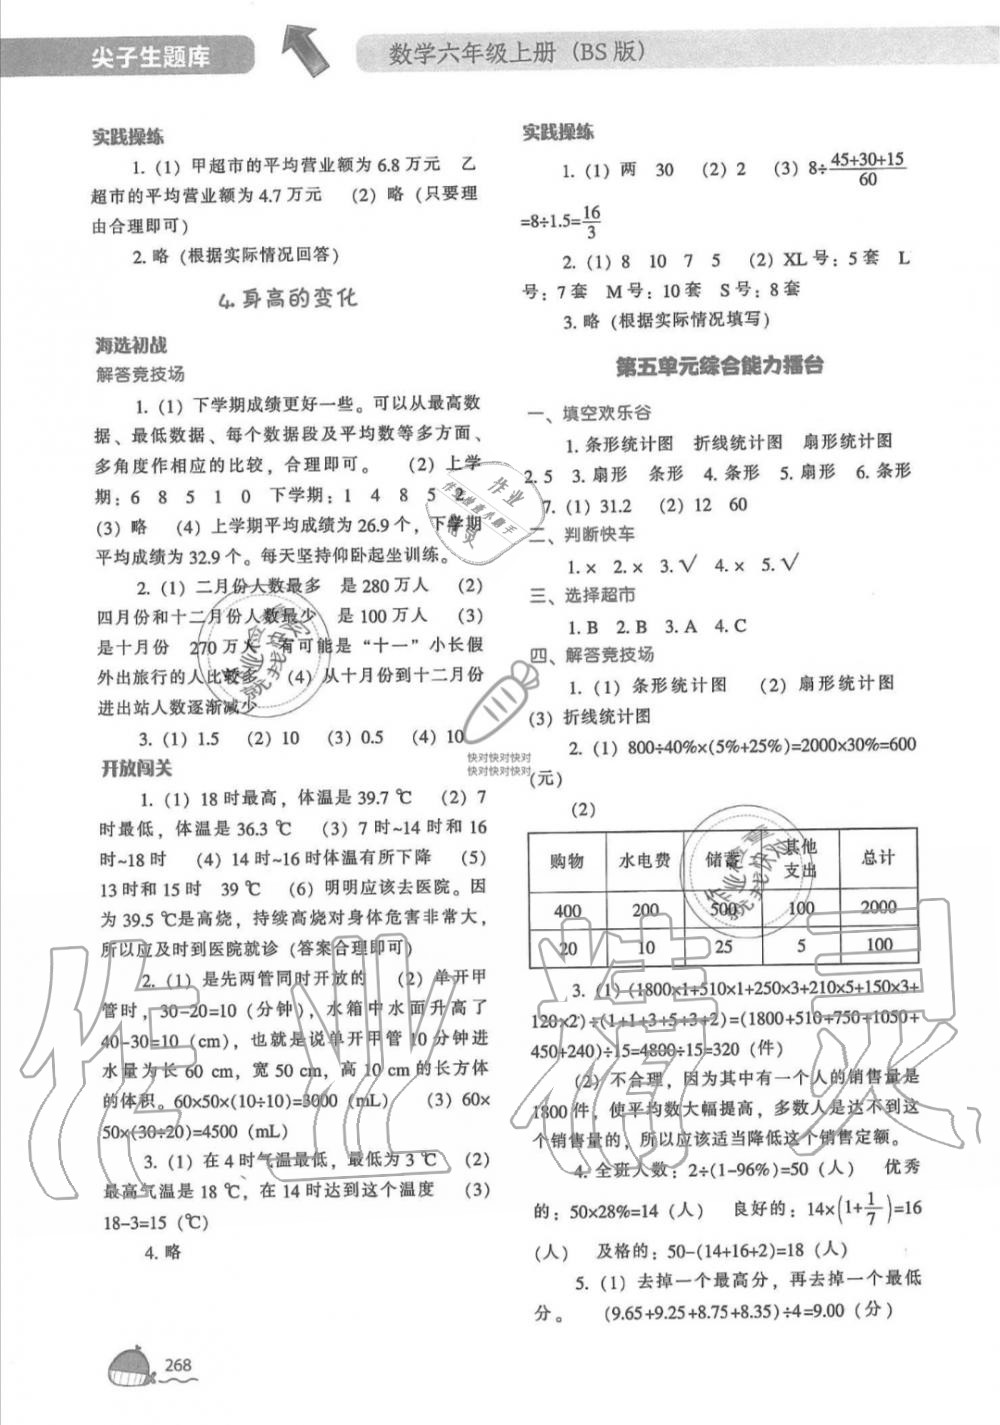 尖子生题库
数学六年级上册（BS版）
实践操练
1.（1）甲超市的平均营业额为6.8万元　乙
超市的平均营业额为4.7万元　（2）略（只要理
由合理即可）
2. 略（根据实际情况回答）
4. 身高的变化
海选初战
解答竞技场
1.（1）下学期成绩更好一些。可以从最高数
据、最低数据、每个数据段及平均数等多方面、
多角度作相应的比较，合理即可。　（2）上学
期：6　8　5　1　0　下学期：1　4　8　5　2
（3）略　（4）上学期平均成绩为26.9个，下学期
平均成绩为32.9个。每天坚持仰卧起坐训练。
2.（1）二月份人数最多　是280万人　（2）
四月份和十二月份人数最少　是100万人　（3）
是十月份　270万人　有可能是“十一”小长假
外出旅行的人比较多　（4）从十月份到十二月份
进出站人数逐渐减少
3.（1）1.5　（2）10　（3）0.5　（4）10
开放闯关
1.（1）18时最高，体温是39.7 ℃　（2）7
时最低，体温是36.3 ℃　（3）7时~14时和16
时~18时　（4）14时~16时体温有所下降　（5）
13时和15时　39 ℃　（6）明明应该去医院。因
为39.5 ℃是高烧，持续高烧对身体危害非常大，
所以应及时到医院就诊（答案合理即可）
2.（1）是先两管同时开放的　（2）单开甲
管时，30-20=10（分钟），水箱中水面升高了
40-30=10（cm），也就是说单开甲管10分钟进
水量为长60 cm，宽50 cm，高10 cm的长方体
的体积。60×50×(10÷10)=3000（mL）　（3）60×
50×(30÷20)=4500（mL）
3.（1）在4时气温最低，最低为3 ℃　（2）
最高气温是18 ℃，在14时达到这个温度　（3）
18-3=15（℃）
4. 略
268
实践操练
1.（1）两　30　（2）2　（3）8÷(45+30+15)/60
=8÷1.5=16/3
2.（1）8　10　7　5　（2）XL号：5套　L
号：7套　M号：10套　S号：8套
3. 略（根据实际情况填写）
第五单元综合能力擂台
一、填空欢乐谷
1. 条形统计图　折线统计图　扇形统计图
2. 5　3. 扇形　条形　4. 条形　5. 扇形　6. 条形
7.（1）31.2　（2）12　60
二、判断快车
1. ×　2. ×　3. √　4. ×　5. √
三、选择超市
1. B　2. B　3. A　4. C
四、解答竞技场
1.（1）条形统计图　（2）扇形统计图
（3）折线统计图
2.（1）800÷40%×(5%+25%)=2000×30%=600
（元）
（2）
购物　水电费　储蓄　其他支出　总计
400　200　500　100　2000
20　10　25　5　100
3.（1）(1800×1+510×1+250×3+210×5+150×3+
120×2)÷(1+1+3+5+3+2)=(1800+510+750+1050+
450+240)÷15=4800÷15=320（件）
（2）不合理，因为其中有一个人的销售量是
1800件，使平均数大幅提高，多数人是达不到这
个销售量的，所以应该适当降低这个销售定额。
4. 全班人数：2÷(1-96%)=50（人）　优秀
的：50×28%=14（人）　良好的：14×(1+1/7)=16
（人）　及格的：50-(14+16+2)=18（人）
5.（1）去掉一个最高分，再去掉一个最低
分。　(9.65+9.25+8.75+8.35)÷4=9.00（分）
快对快对快对
快对快对快对
作业精灵
作业检查
就找快对
作业检查
就找快对